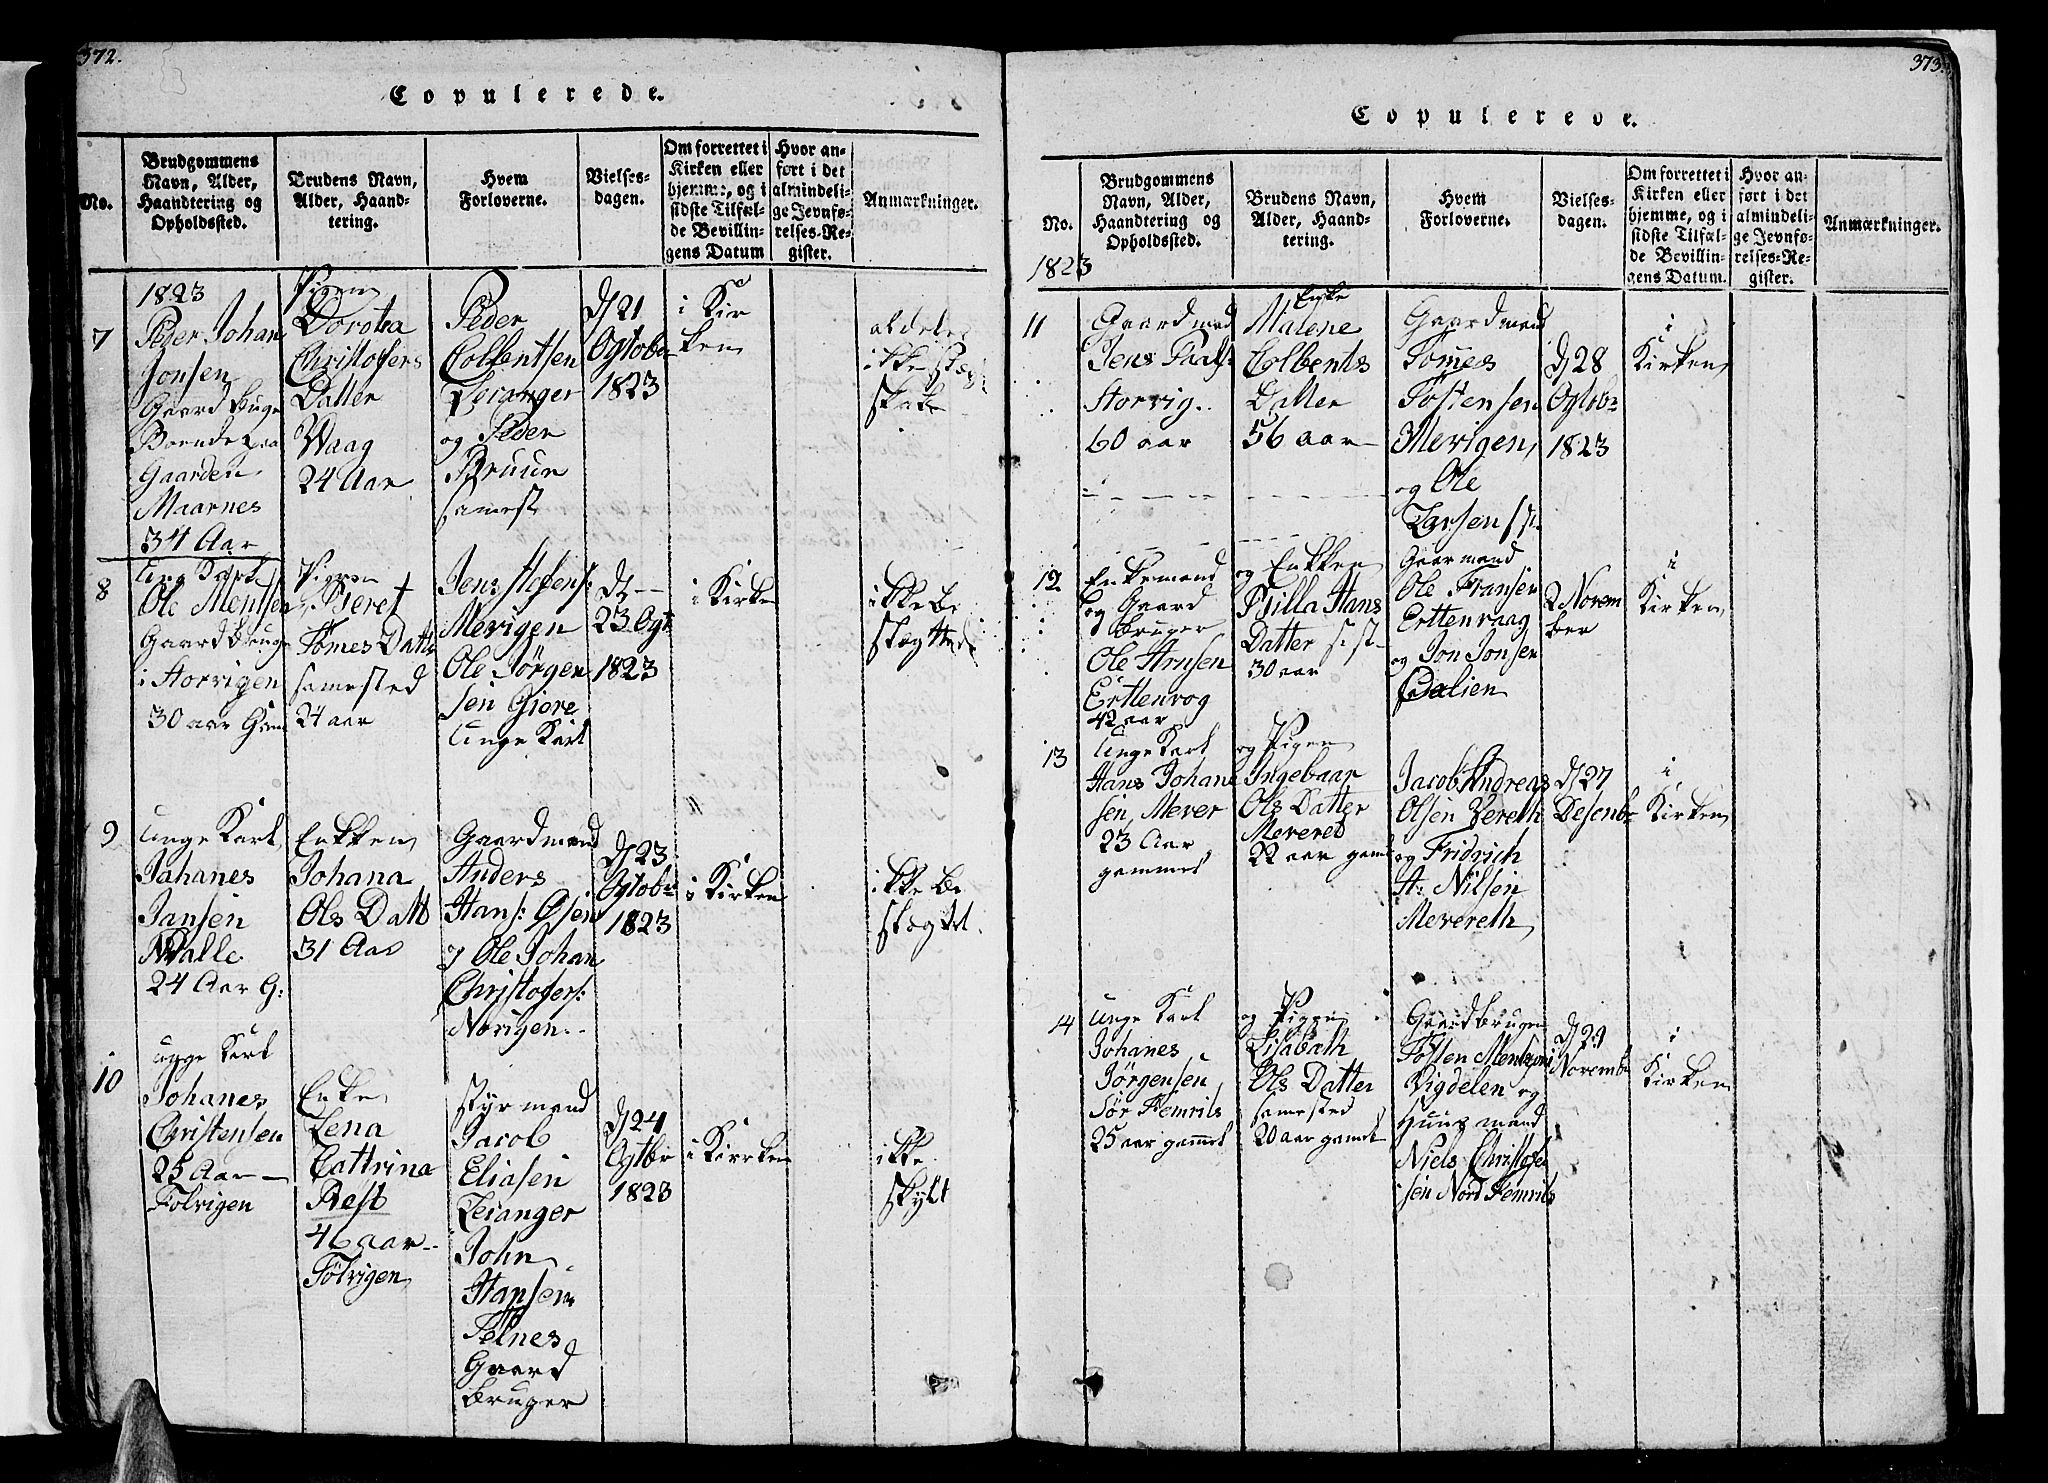 372.
Copulerede.
No.
Brudgommens
Navn, Alder,
Haandtering og
Opholdssted.
Brudens Navn,
Alder, Haand-
tering.
Hvem
Forloverne.
Vielses-
dagen.
Om forrettet i
Kirken eller
hjemme, og i
sidste Tilfæl-
de Bevillin-
gens Datum
Hvor an-
ført i det
almindeli-
ge Jevnfø-
relses-Re-
gister.
Anmærkninger.
7
1823
Peder Johan
Jonsen
Gaard bruge
Boende paa
Gaarden
Maarnes
34 Aar
Pigen
Dorotea
Christofers
Datter
Waag
24 Aar
Peder
Colbentsen
Leianger
og Peder
Bruun
samest
D 21
Ogtober
1823
i Kir
ken
aldeles
ikke
8
Ole Mentsen
Gaardbruge
i Storvigen
30 aar
Pigen
Beret
Tomes Datter
samested
24 aar
Jens
Mevigen
Ole Jörgen
sen Giore
unge Karl
D --
23 Ogt
1823
i Kirke
ikke be
9
unge Karl
Johanes
Jansen
Walle
24 Aar G:
Enken
Johana
Ols Datt
31 Aar
Gaardmand
Anders
Hans: Øsen
og Ole Johan
Christofers:
Norigen..
D 23
Ogtober
1823
i Kirken
ikke be
10
unge Karl
Johanes
Christensen
25 Aar
Folvigen
Enke
Lena
Cattrina
Rest
46 aar
Tölvigen
styrmand
Jacob
Eliasen
Leianger
John
Hansen
Telnes
Gaard
bruger
D 24
Ogtbr
1823
i Kirken
ikke
skylt
373.
Copulerede.
No.
Brudgommens
Navn, Alder,
Haandtering og
Opholdssted.
Brudens Navn,
Alder, Haand-
tering.
Hvem
Forloverne.
Vielses-
dagen.
Om forrettet i
Kirken eller
hjemme, og i
sidste Tilfæl-
de Bevillin-
gens Datum.
Hvor an-
ført i det
almindeli-
ge Jevnfø-
relses-Re-
gister.
Anmærkninger.
1823
11
Gaardmand
Jens
Storvig.
60 aar
Enke
Malene
Colbents
Datter
56 aar
Gaardmand
Tomes
Tostensen
Mevigen
og Ole
Larsen
D 28
Ogtobr
1823
i
Kirken
12.
Enkemand
og Gaard
bruger
Ole Arnsen
Erttenvog
42 aar
og Enken
Psilla Hans
Datter
30 aar
Gaarmand
Ole Fransen
Erttenvaag
og Jon Jonsen
Dalien
2 Novem
ber
i
Kirken
13
unge Karl
Hans Johane
sen, Mever
23 Aar
gammel
og Pigen
Ingebaar
Ols Datter
Mevered
22 aar gam
Jacob Andreas
Olsen Vereth
og Fridrich
A: Nilsen
Mevereth
D 27
Desenbr
i
Kirken
14
unge Karl
Johanes
Jörgensen
Sör Femrils
25 aar gammel
og Pigen
Lisabath
Ols Datter
samested
20 aar gamel
Gaardbruger
Tosten Mentsen
Vigdelen og
Huusmand
Niels Christofer
sen Nord Femrils
D 29
Novembr
i
Kirken